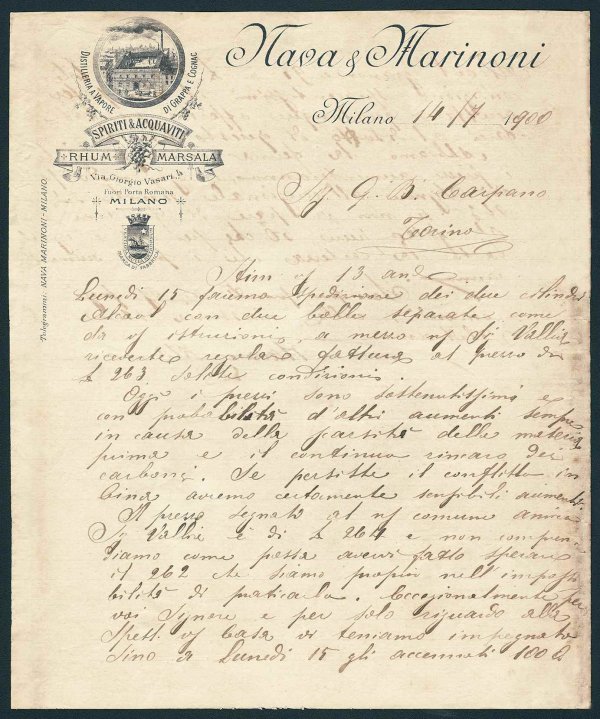 Nava & Marinoni
DISTILLERIA A VAPORE DI GRAPPA E COGNAC
SPIRITI & ACQUAVITI
RHUM MARSALA
Via Giorgio Vasari, 4
Fuori Porta Romana
MILANO
MARCA DI FABBRICA
Telegrammi: NAVA MARINONI - MILANO.
Milano 14/7 1900
Sig G. B. Carpano
Torino
13 and
Lunedì 15 faremo spedizione dei due cilindri
Alcool con due bolle separate come
da istruzioni, a mezzo Sig Vallia
riceverete regolare fattura al prezzo di
£ 263 solite condizioni.
Oggi i prezzi sono sostenutissimi e
con probabilità d'altri aumenti sempre
in causa della scarsità della materia
prima e il continuo rincaro dei
carboni. Se persiste il conflitto in
Cina avremo certamente sensibili aumenti.
Il prezzo segnato al comune amico
Sig Vallia è di £ 264 e non compren-
diamo come possa avervi fatto sperare
il 262 che siamo proprio nell'impossi
bilità di praticarlo. Eccezionalmente per
voi Signore e per solo riguardo alla
Spett. Casa vi teniamo impegnato
sino a Lunedì 15 gli accennati 100 Q